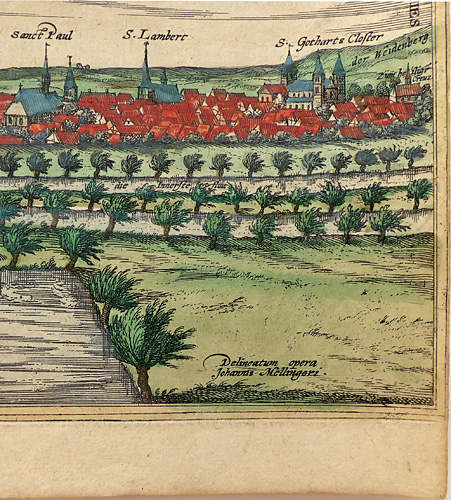 Sanct Paul
S. Lambert
S. Gotharts Closter
der Weidenberg
Zum heilig
Creuz
die Innerste flus
Delineatum opera
Johannis Mellingeri